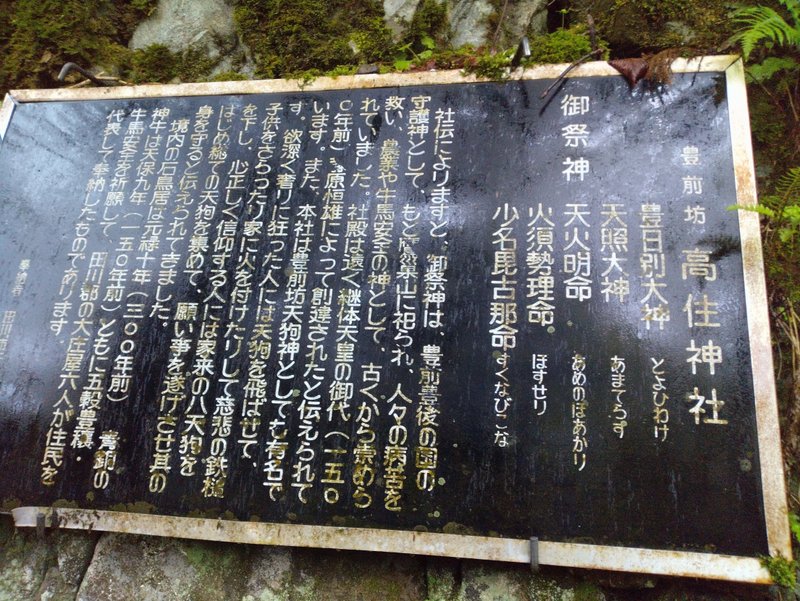 豊前坊 高住神社
御祭神
豊日別大神 とよひわけ
天照大神 あまてらす
天火明命 あめのほあかり
火須勢理命 ほすせり
少名毘古那命 すくなびこな
社伝によりますと、御祭神は、豊前豊後の国の
守護神として、もと鷹巣山に祀られ、人々の病苦を
救い、農業や牛馬安全の神として、古くから崇めら
れていました。社殿は遠く継体天皇の御代(一五〇
〇年前)原恒雄によって創建されたと伝えられて
います。また、本社は豊前坊天狗神としても有名で
す。欲深く奢りに狂った人には天狗を飛ばせて、
子供をさらったり家に火を付けたりして慈悲の鉄槌
を下し、心正しく信仰する人には家来の八天狗を
はじめ総ての天狗を集めて、願い事を遂げさせ其の
身を守ると伝えられて来ました。
境内の石鳥居は元禄十年(三〇〇年前) 青銅の
神牛は天保九年(一五〇年前)ともに五穀豊穣・
牛馬安全を祈願して、田川郡の大庄屋六人が住民を
代表して奉納したものであります。
田川